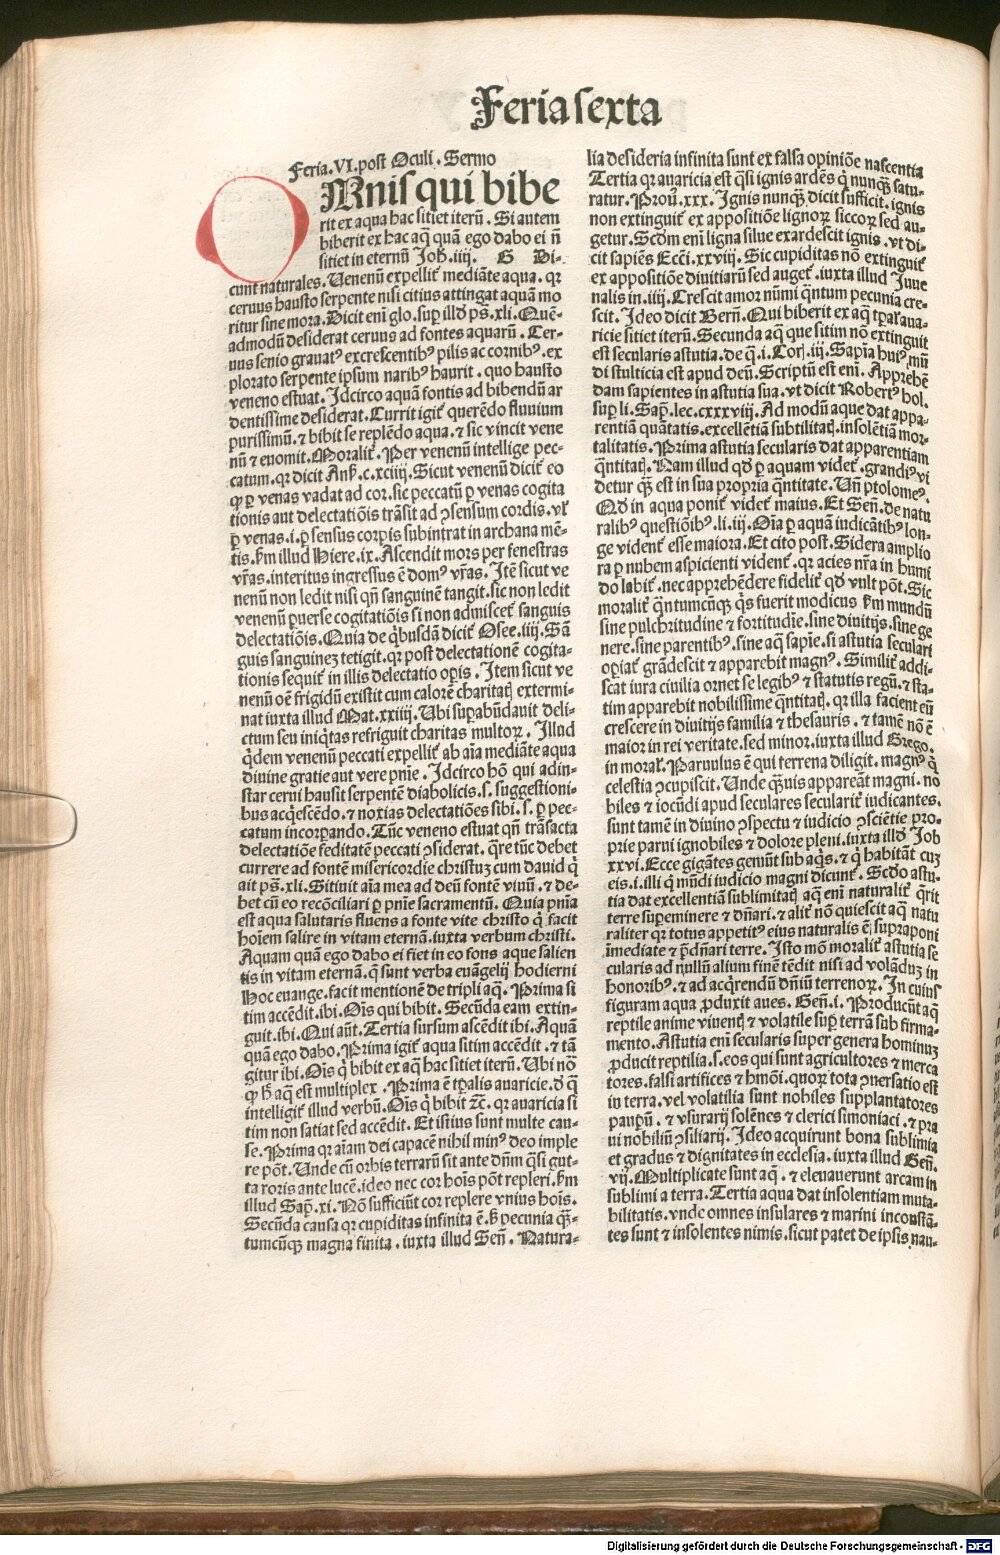 Feria sexta
Feria.VI.post Oculi.Sermo
OMnis qui bibe
rit ex aqua hac sitiet iterũ. Si autem
biberit ex hac aq̃ quã ego dabo ei ñ
sitiet in eternũ Joh̃.iiij. G Di-
cunt naturales. Venenũ expellit᷑ mediãte aqua. qr
ceruus hausto serpente nisi citius attingat aquã mo
ritur sine mora. Dicit eni glo. sup̱ illd̓ ps̃.xli. Quẽ-
admodũ desiderat ceruus ad fontes aquarũ. Cer-
uus senio grauatꝰ excrescentibꝰ pilis ac cornibꝰ. ex
plorato serpente ipsum naribꝰ haurit. quo hausto
veneno estuat. Jdcirco aquã fontis ad bibendũ ar
dentissime desiderat. Currit igit᷑ querẽdo fluuium
purissimũ. ⁊ bibit se replẽdo aqua. ⁊ sic vincit vene
nũ ⁊ euomit. Moralit᷑. Per venenũ intellige pec-
catum. qr dicit Anẜ.c.xciiij. Sicut venenũ dicit᷑ eo
ꝙ ꝑ venas vadat ad cor. sic peccatũ ꝑ venas cogita
tionis aut delectatiõis trãsit ad ꝯsensum cordis. vł
ꝑ venas.i.ꝑ sensus corꝑis subintrat in archana mẽ-
tis. ẜm illud Hiere.ix. Ascendit mors per fenestras
vr̃as. interitus ingressus ẽ domꝰ vr̃as. Jtẽ sicut ve
nenũ non ledit nisi qñ sanguinẽ tangit. sic non ledit
venenũ ꝑuerse cogitatiõis si non admiscet᷑ sanguis
delectatiõis. Quia de q̇busdã dicit᷑ Osee.iiij. Sã
guis sanguinez tetigit. qr post delectationẽ cogita-
tionis sequit᷑ in illis delectatio oꝑis. Jtem sicut ve
nenũ oẽ frigidũ existit cum calorẽ charitatꝭ extermi-
nat iuxta illud Mat.xxiiij. Vbi supabũdauit deli-
ctum seu iniq̇tas refriguit charitas multoꝝ. Jllud
q̇dem venenũ peccati expellit᷑ ab aĩa mediãte aqua
diuine gratie aut vere pñie. Jdcirco hõ qui adin-
star cerui hausit serpentẽ diabolicis.s.suggestioni-
bus acq̇escẽdo. ⁊ noxias delectatiões sibi.s.ꝑ pec-
catum incorꝑando. Tũc veneno estuat qñ trãsacta
delectatiõe feditatẽ peccati ꝯsiderat. q̃re tũc debet
currere ad fontẽ misericordie christuz cum dauid q̇
ait ps̃.xli. Sitiuit aĩa mea ad deũ fontẽ viuũ. ⁊ de-
bet cũ eo recõciliari ꝑ pñie sacramentũ. Quia pñia
est aqua salutaris fluens a fonte vite christo q̇ facit
hoĩem salire in vitam eternã. iuxta verbum christi.
Aquam quã ego dabo ei fiet in eo fons aque salien
tis in vitam eternã. q̃ sunt verba euãgelij hodierni
Hoc euange. facit mentionẽ de tripli aq̃. Prima si
tim accẽdit. ibi. Oĩs qui bibit. Secũda eam extin-
guit. ibi. Qui aũt. Tertia sursum ascẽdit ibi. Aquã
quam ego dabo. Prima igit᷑ aqua sitim accẽdit. ⁊ tã
gitur ibi. Oĩs q̇ bibit ex aq̃ hac sitiet iterũ. Vbi nõ
ꝙ ħ aq̃ est multiplex. Prima ẽ tp̃alis auaricie. ď q̃
intelligit᷑ illud verbũ. Oĩs q̇ bibit ⁊c̃. qr auaricia si
tim non satiat sed accẽdit. Et istius sunt multe cau-
se. Prima qr aĩam dei capacẽ nihil minꝰ deo imple
re põt. Unde cũ orbis terrarũ sit ante dñm q̃si gut-
ta roris ante lucẽ. ideo nec cor hoĩs põt repleri. ẜm
illud Sap̃.xi. Nõ sufficiũt cor replere vnius hoĩs.
Secũda causa qr cupiditas infinita ẽ. ẜ pecunia q̃-
tumcũq̃ magna finita. iuxta illud Señ. Natura-
lia desideria infinita sunt ex falsa opiniõe nascentia
Tertia qr auaricia est q̃si ignis ardẽs q̇ nunq̃ satu-
ratur. Prou̓.xxx. Jgnis nunq̃ dicit sufficit. ignis
non extinguit᷑ ex appositiõe lignoꝝ siccoꝝ sed au-
getur. Scd̓m eni ligna silue exardescit ignis. vt di-
cit sapiẽs Ecci.xxviij. Sic cupiditas nõ extinguit᷑
ex appositiõe diuitiarũ sed auget᷑. iuxta illud Juue
nalis in.iiij. Crescit amor nũmi q̃ntum pecunia cre-
scit. Jdeo dicit Berñ. Qui biberit ex aq̃ tp̃ał aua-
ricie sitiet iterũ. Secunda aq̃ que sitim nõ extinguit
est secularis astutia. de q̃.i.Corꝭ.iij. Sap̃ia huiꝰ mũ
di stulticia est apud deũ. Scriptũ est eni. Apprehẽ
dam sapientes in astutia sua. vt dicit Robertꝰ hol.
sup̱ li. Sap̃.lec.cxxxviij. Ad modũ aque dat appa-
rentiã quãtatis. excellẽtiã subtilitatꝭ. insolẽtiã mor-
talitatis. Prima astutia secularis dat apparentiam
q̃ntitatꝭ. Nam illud qd̓ ꝑ aquam videt᷑. grandiꝰ vi
detur q̃ est in sua propria q̃ntitate. Uñ ptolomeꝰ.
Qd̓ in aqua ponit᷑ videt᷑ maius. Et Señ. de natu
ralibꝰ questiõibꝰ.li.iij. Oĩa ꝑ aquã iudicãtibꝰ lon-
ge vident᷑ esse maiora. Et cito post. Sidera amplio
ra ꝑ nubem aspicienti vident᷑. qr acies nr̃a in humi
do labit᷑. nec apprehẽdere fidelit᷑ qd̓ vult põt. Sic
moralit᷑ q̃ntumcũq̃ q̇s fuerit modicus ẜm mundũ
sine pulchritudine ⁊ fortitudĩe. sine diuitijs. sine ge
nere. sine parentibꝰ. sine aq̃ sapĩe. si astutia seculari
oꝑiat᷑ grãdescit ⁊ apparebit magnꝰ. Similit᷑ addi-
scat iura ciuilia ornet se legibꝰ ⁊ statutis regũ. ⁊ sta-
tim apparebit nobilissime q̃ntitatꝭ. qr illa facient eũ
crescere in diuitijs familia ⁊ thesauris. ⁊ tamẽ nõ ẽ
maior in rei veritate. sed minor. iuxta illud Grego.
in morał. Paruulus ẽ qui terrena diligit. magnꝰ q̇
celestia ꝯcupiscit. Unde q̃uis appareãt magni. no
biles ⁊ iocũdi apud seculares secularit᷑ iudicantes.
sunt tamẽ in diuino ꝯspectu ⁊ iudicio ꝯsciẽtie pro-
prie parui ignobiles ⁊ dolore pleni. iuxta illd̓ Job
xxvi. Ecce gigãtes gemũt sub aq̇s. ⁊ q̇ habitãt cuz
eis.i.illi q̇ mũdi iudicio magni dicunt᷑. Scd̓o astu-
tia dat excellentiã sublimitatꝭ aq̃ eni naturalit᷑ q̃rit
terre supeminere ⁊ dñari. ⁊ alit᷑ nõ quiescit aq̃ natu
raliter qr totus appetitꝰ eius naturalis ẽ supraponi
ĩmediate ⁊ p̃dñari terre. Jsto mõ moralit᷑ astutia se
cularis ad nullũ alium finẽ tẽdit nisi ad volãduz in
honoribꝰ. ⁊ ad acq̇rendũ dñiũ terrenoꝝ. Jn cuius
figuram aqua ꝓduxit aues. Geñ.i. Producũt aq̃
reptile anime viuentꝭ ⁊ volatile sup̱ terrã sub firma-
mento. Astutia eni secularis super genera hominuz
ꝓducit reptilia.s.eos qui sunt agricultores ⁊ merca
tores. falsi artifices ⁊ hmõi. quoꝝ tota ꝯuersatio est
in terra. vel volatilia sunt nobiles supplantatores
pauꝑũ. ⁊ vsurarij solẽnes ⁊ clerici simoniaci. ⁊ pra
ui nobiliũ ꝯsiliarij. Jdeo acquirunt bona sublimia
et gradus ⁊ dignitates in ecclesia. iuxta illud Geñ.
vij. Multiplicate sunt aq̃. ⁊ eleuauerunt arcam in
sublimi a terra. Tertia aqua dat insolentiam muta-
bilitatis. vnde omnes insulares ⁊ marini inconstã-
tes sunt ⁊ insolentes nimis. sicut patet de ipsis nau-
Digitalisierung gefördert durch die Deutsche Forschungsgemeinschaft - DFG